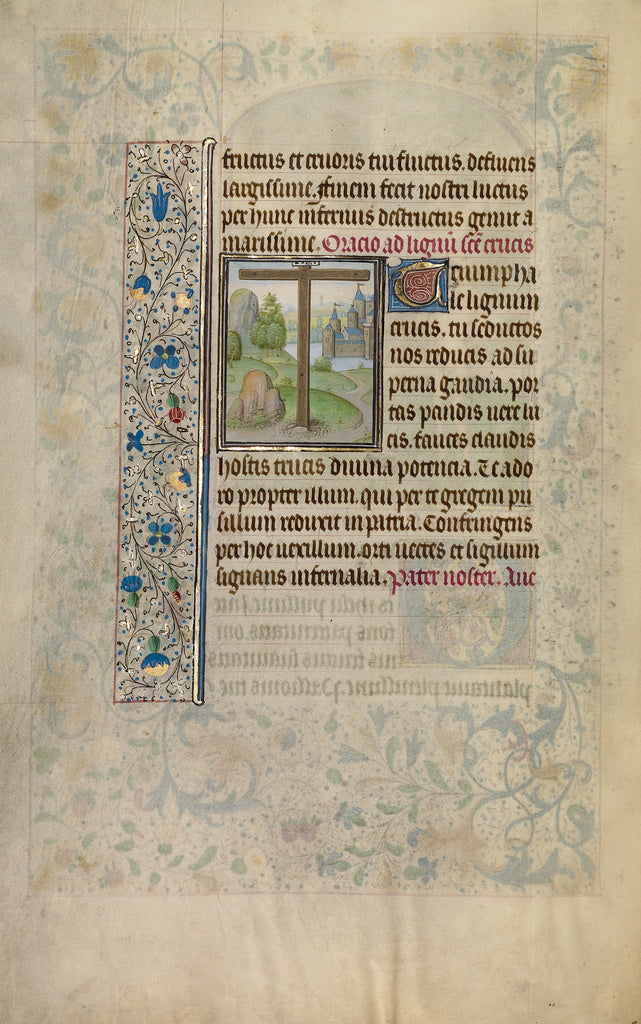 fructus et cruoris tui fluctus. defluens
largissime. Finem fecit nostri luctus
per hunc infernus destructus gemit a
marissime. Oracio ad lignũ scẽ crucis
Triumpha
le lignum
crucis. tu seductos
nos reducis ad su
perna gaudia. por
tas pandis uere lu
cis. fauces claudis
hostis trucis diuina potencia. Te ado
ro propter illum. qui per te gregem pu
sillum reduxit in patria. Confringens
per hoc uexillum. orci uectes et sigillum
signans infernalia. Pater noster. Aue